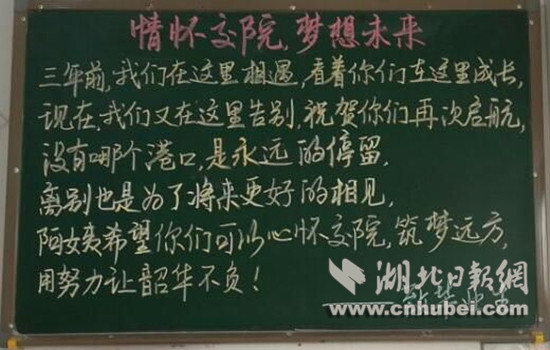 情怀交院,梦想未来
三年前,我们在这里相遇,看着你们在这里成长,
现在,我们又在这里告别,祝贺你们再次启航,
没有哪个港口,是永远的停留,
离别也是为了将来更好的相见,
阿姨希望你们可以心怀交院,筑梦远方,
用努力让韶华不负!
湖北日报網
www.cnhubei.com